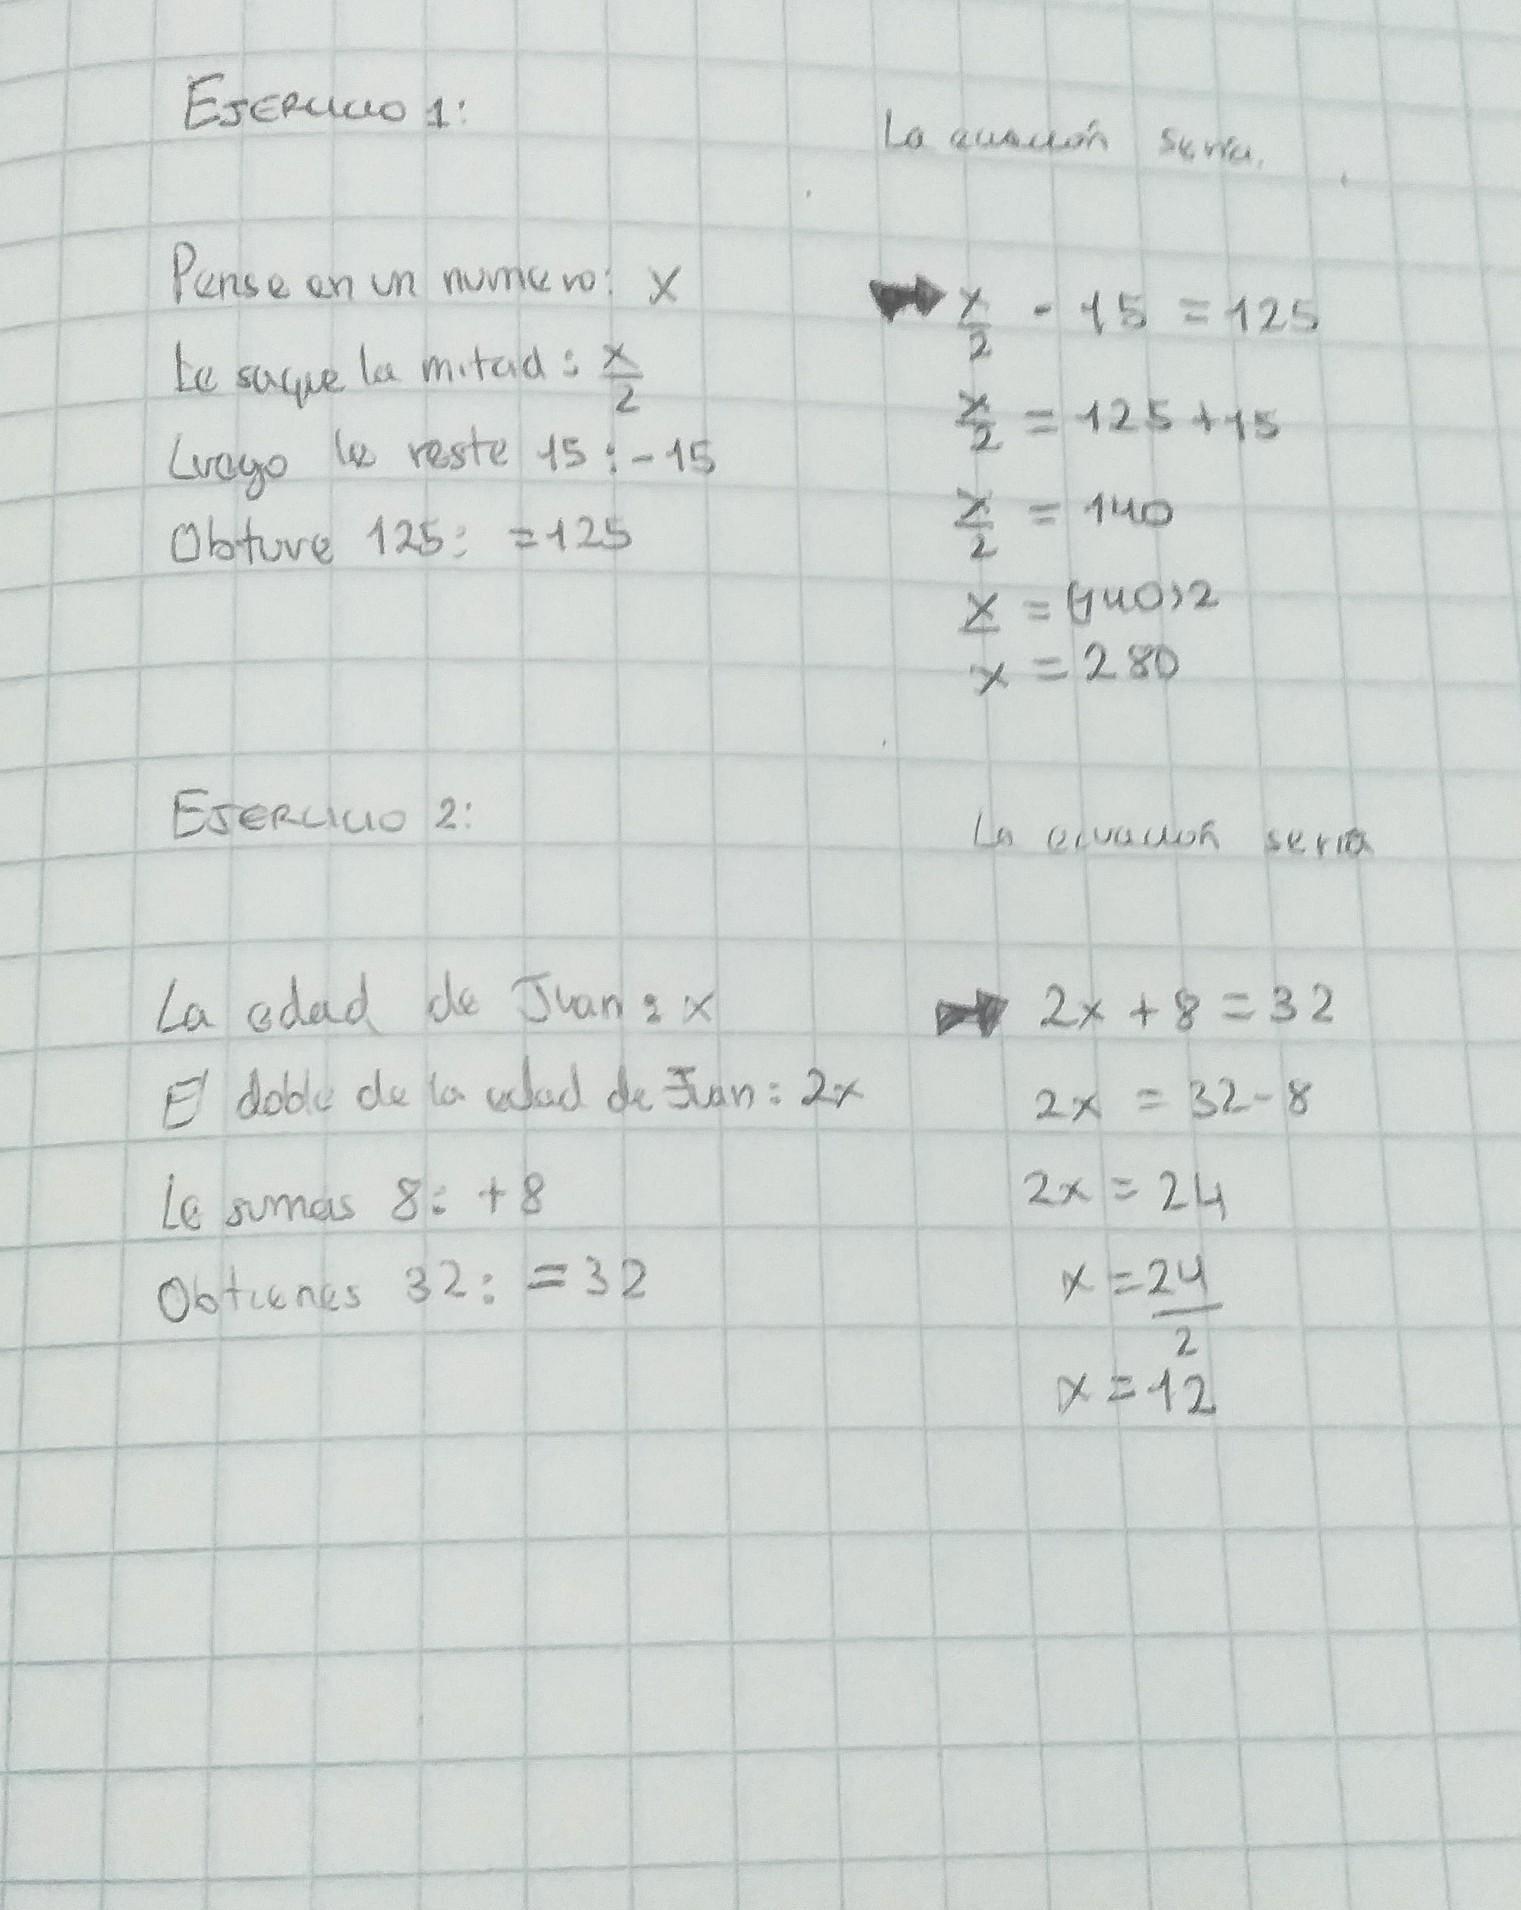 EJERCICIO 1:
La ecuación sería.
Pense en un numero: x
Le saque la mitad: x/2
Luego le reste 15: -15
Obtuve 125: =125
x/2 - 15 = 125
x/2 = 125 + 15
x/2 = 140
x = (140)2
x = 280
EJERCICIO 2:
La ecuación seria
La edad de Juan: x
El doble de la edad de Juan: 2x
Le sumas 8: +8
Obtienes 32: =32
2x + 8 = 32
2x = 32 - 8
2x = 24
x = 24/2
x = 12